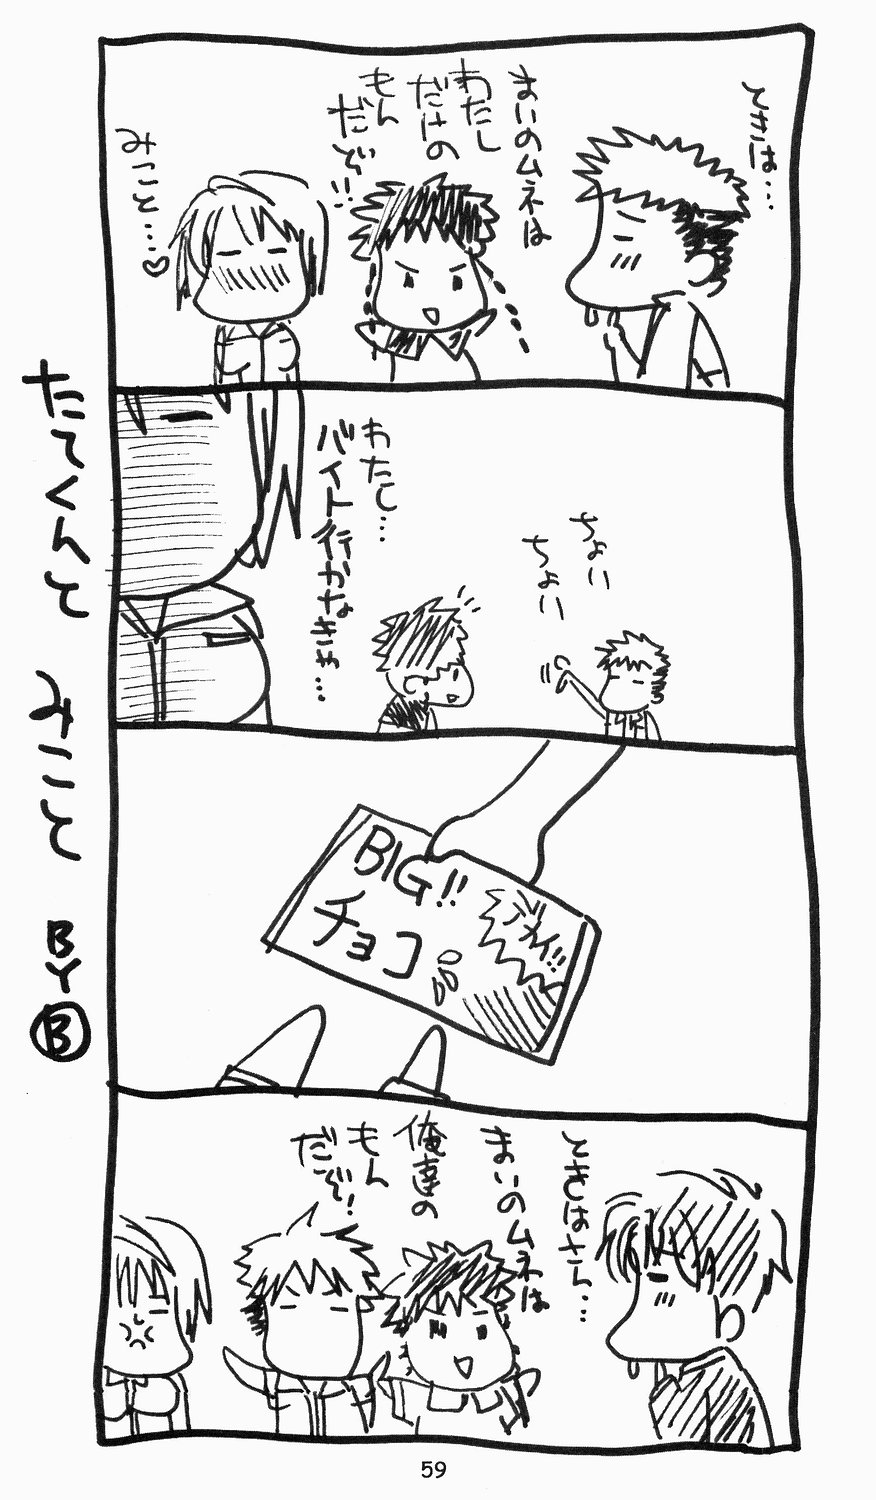 ときは…
まいのムネは
わたし
だけの
もん
だぞ!!
みこと…♡
ちょい
ちょい
わたし…
バイト行かなきゃ…
BIG!!
チョコ
ウメイ!!
ときはさん…
まいのムネは
俺達の
もん
だぞ!
たてくんと みこと BY B
59